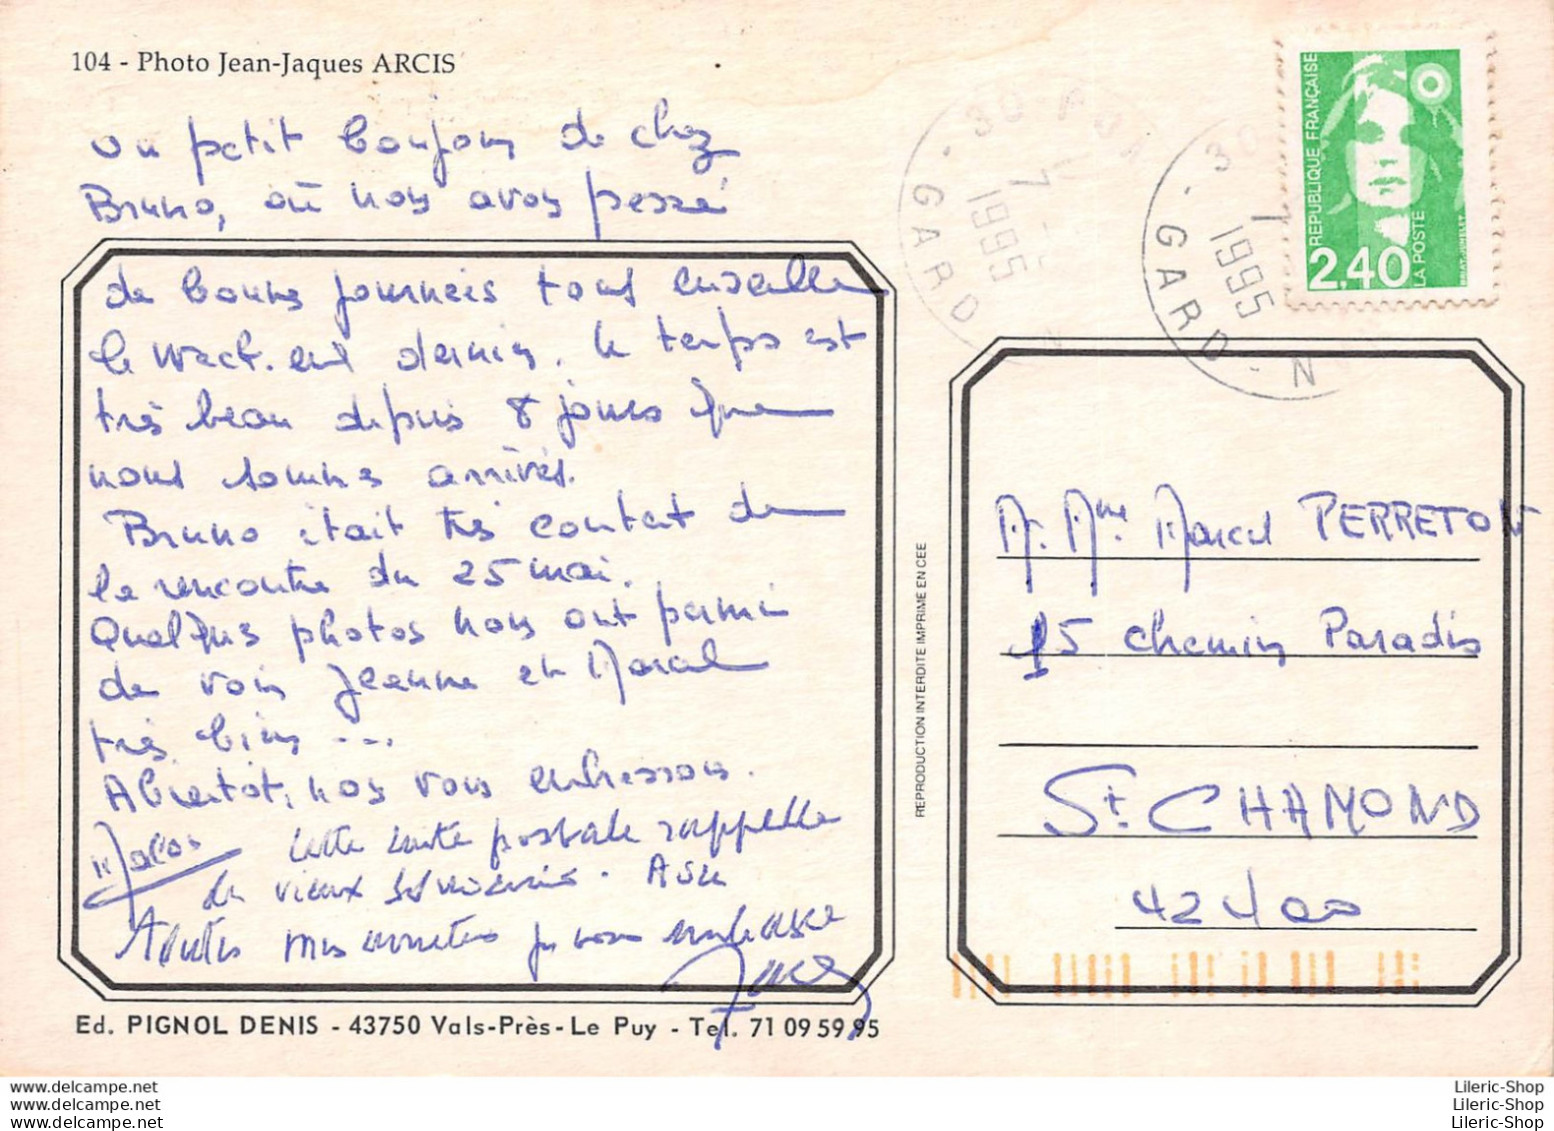 104 - Photo Jean-Jaques ARCIS
un petit bonjour de chez
Bruno, où nous avons passé
de bonnes journées tous ensemble
le week-end dernier. le temps est
très beau depuis 8 jours que
nous sommes arrivés.
Bruno était très content de
la rencontre du 25 mai.
Quelques photos nous ont permis
de voir Jeanne et Marcel
très bien ...
A bientôt, nous vous embrassons.
cette carte postale rappelle
de vieux souvenirs. A
Toutes mes amitiés je vous embrasse
Ed. PIGNOL DENIS - 43750 Vals-Près-Le Puy - Tel. 71 09 59 95
REPRODUCTION INTERDITE IMPRIME EN CEE
30
7
1995
GARD
30
1995
GARD
N
REPUBLIQUE FRANÇAISE
2,40
LA POSTE
BRIAT-JUMELET
M. Mme Marcel PERRETON
15 chemin Paradis
St. CHAMOND
42400
www.delcampe.net
www.delcampe.net
www.delcampe.net
Lileric-Shop
Lileric-Shop
Lileric-Shop